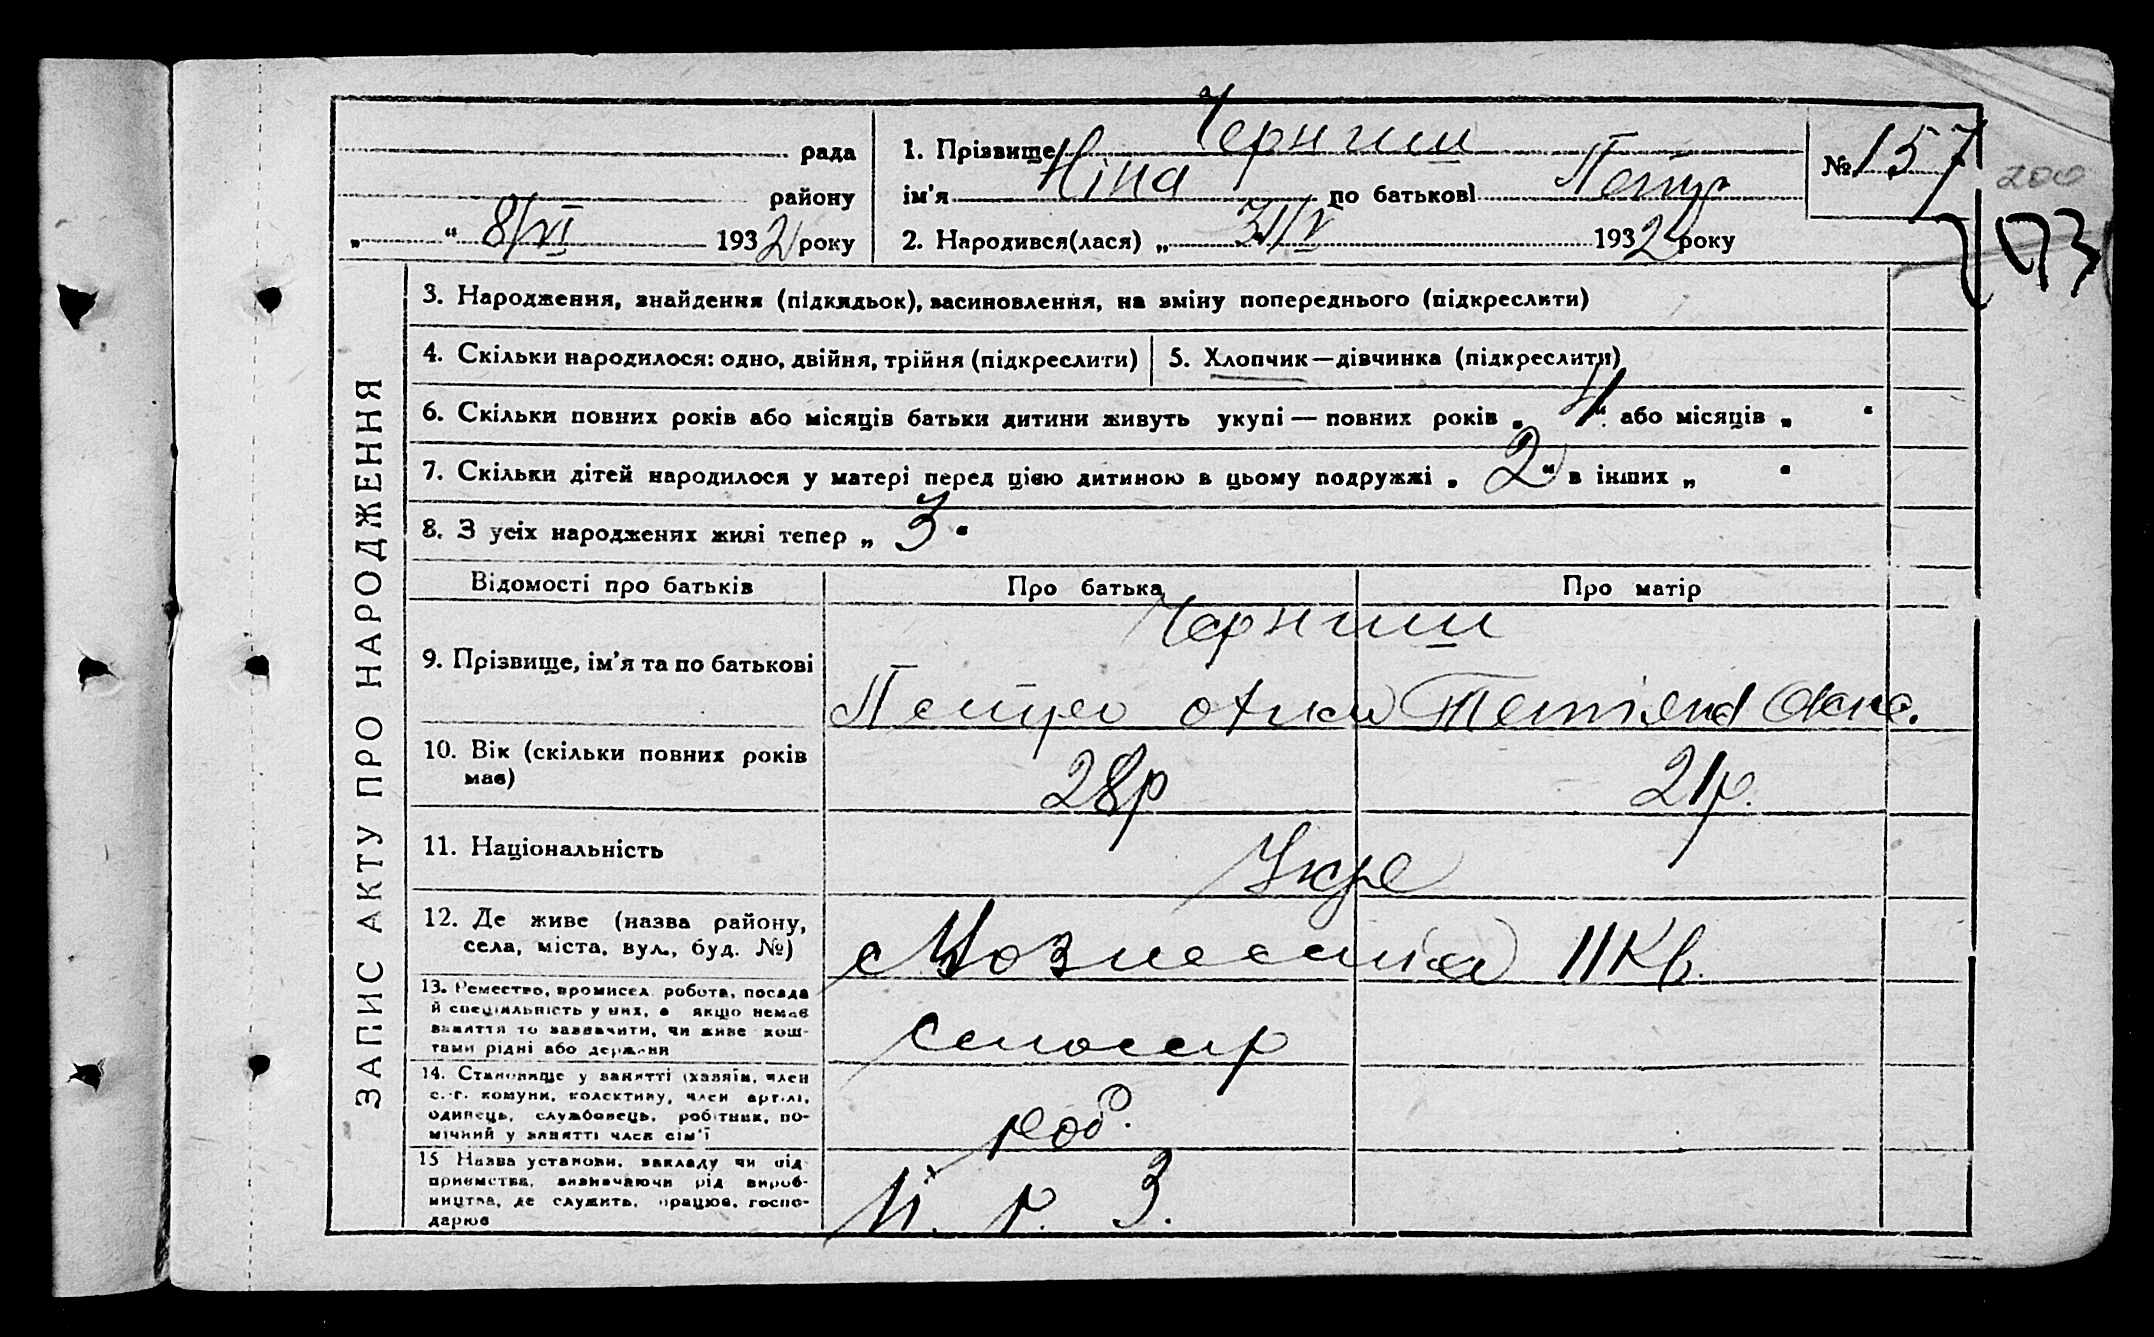 рада
району
„ “ 8/VI 1932 року
1. Прізвище Черниш
ім’я Ніна по батькові Петр
2. Народився(лася) „ 31/V 1932 року
№ 157
200
ЗАПИС АКТУ ПРО НАРОДЖЕННЯ
3. Народження, знайдення (підкидьок), васиновлення, на зміну попереднього (підкреслити)
4. Скільки народилося: одно, двійня, трійня (підкреслити)
5. Хлопчик—дівчинка (підкреслити)
6. Скільки повних років або місяців батьки дитини живуть укупі — повних років „ 4 “ або місяців „ “
7. Скільки дітей народилося у матері перед цією дитиною в цьому подружжі „ 2 “ в інших „ “
8. З усіх народжених живі тепер „ 3 “
Відомості про батьків Про батька Про матір
9. Прізвище, ім’я та по батькові
Черниш
Петро
10. Вік (скільки повних років
має)
28р 21р.
11. Національність
Укр
12. Де живе (назва району,
села, міста, вул., буд. №)
11 Кв.
13. Ремество, промисел, робота, посада
й спеціяльність у них, а якщо немає
заняття то зазначити, чи живе кош-
тами рідні або держави
слюсар
14. Становище у занятті (хазяїн, член
с.-г. комуни, колективу, член артілі,
одинець, службовець, робітник, по-
мічний у занятті член сім’ї
роб.
15 Назва установи, закладу чи під-
приємства, визначаючи рід вироб-
ництва, де служить, працює, госпо-
дарює